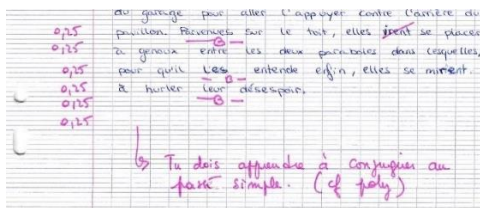 du garage pour aller l'appuyer contre l'arrière du
0,25 pavillon. Parvenues sur le toit, elles irent se placer
0,25 à genoux entre les deux paraboles dans lesquelles,
0,25 pour qu'il les entende enfin, elles se mirent.
0,25 à hurler leur désespoir.
0,25
0,25
Tu dois apprendre à conjuguer au
passé simple. (cf poly)